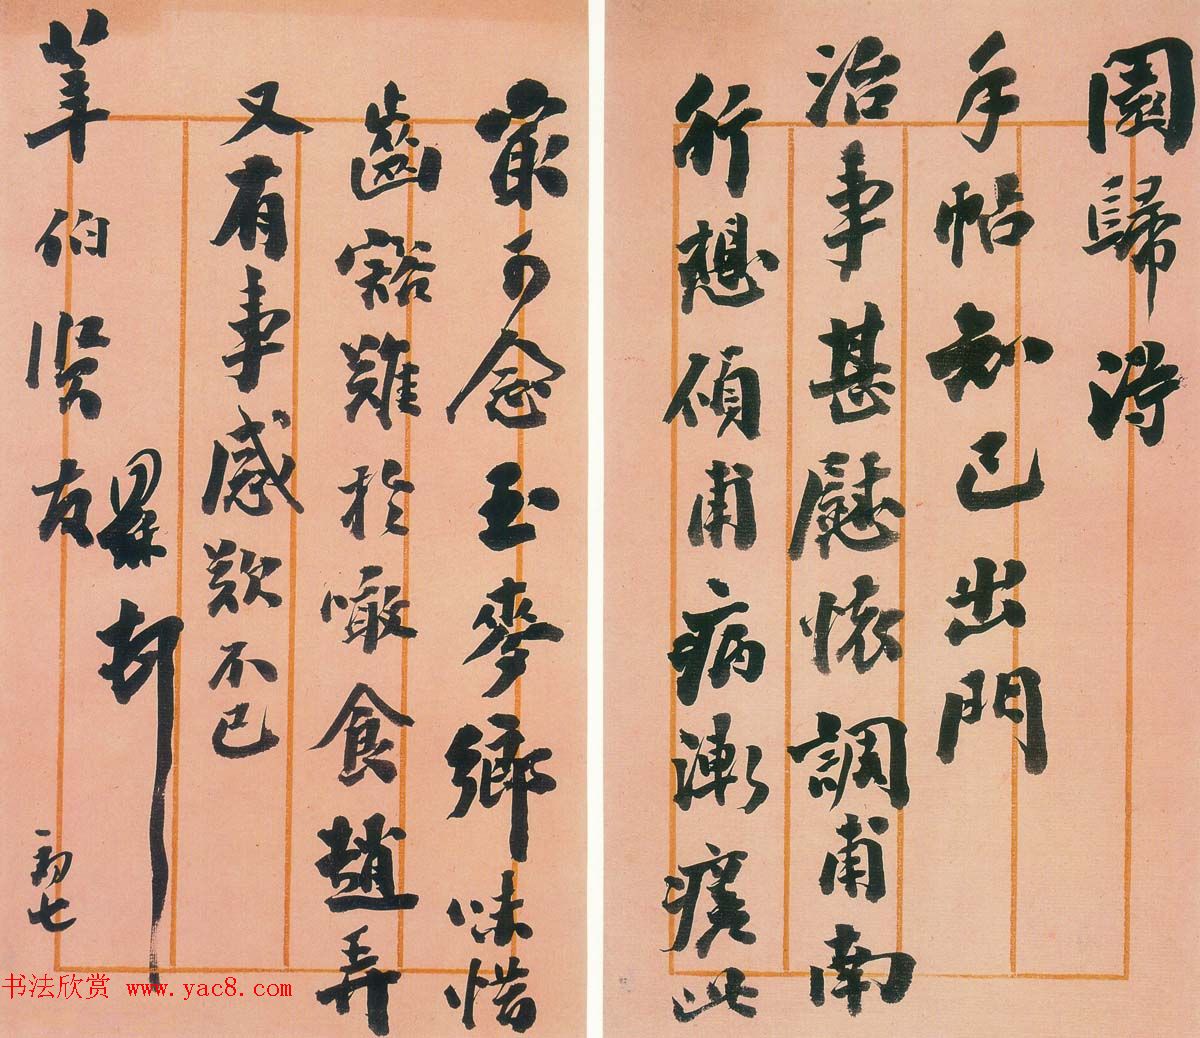 園歸得
手帖知已出門
治事甚慰懷調甫南
行想碩甫病漸瘳此
最可念玉麥鄉味惜
齒豁難於噉食趙弄
又有事感歎不已
筆伯賢友
期 頓
初七
书法欣赏 www.yac8.com